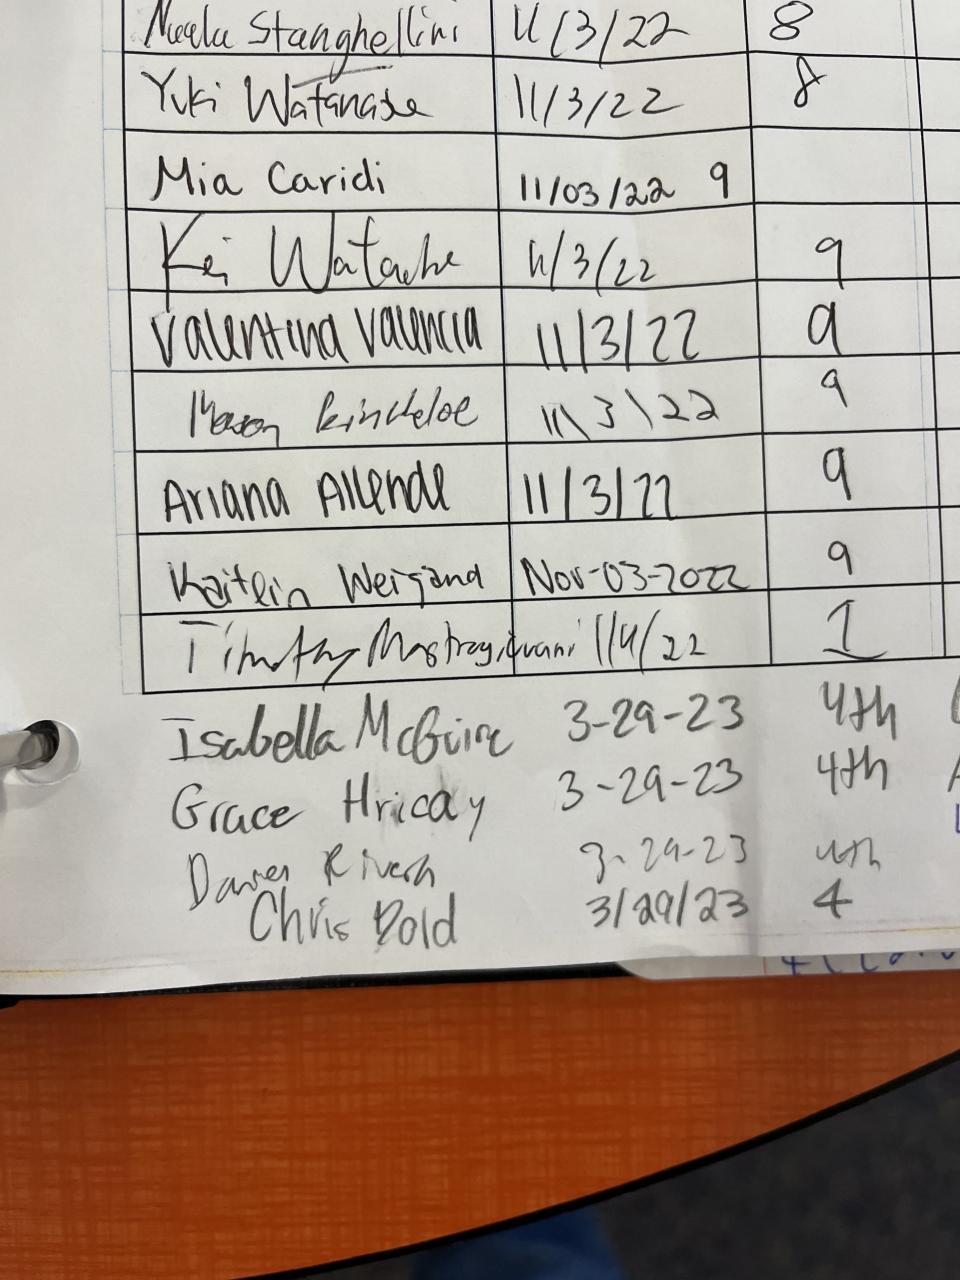 Stanghellini 11/3/22 8
Yuki Watanabe 11/3/22 8
Mia Caridi 11/03/22 9
Kei Watanabe 11/3/22 9
Valentina Valencia 11/3/22 9
Mason Kincheloe 11\3\22 9
Ariana Allende 11/3/22 9
Kaitlin Weigand Nov-03-2022 9
Timothy Mastrogiovanni 11/4/22 1
Isabella McGuire 3-29-23 4th
Grace Hricay 3-29-23 4th
Rivera 3-29-23 4th
Chris Dold 3/29/23 4